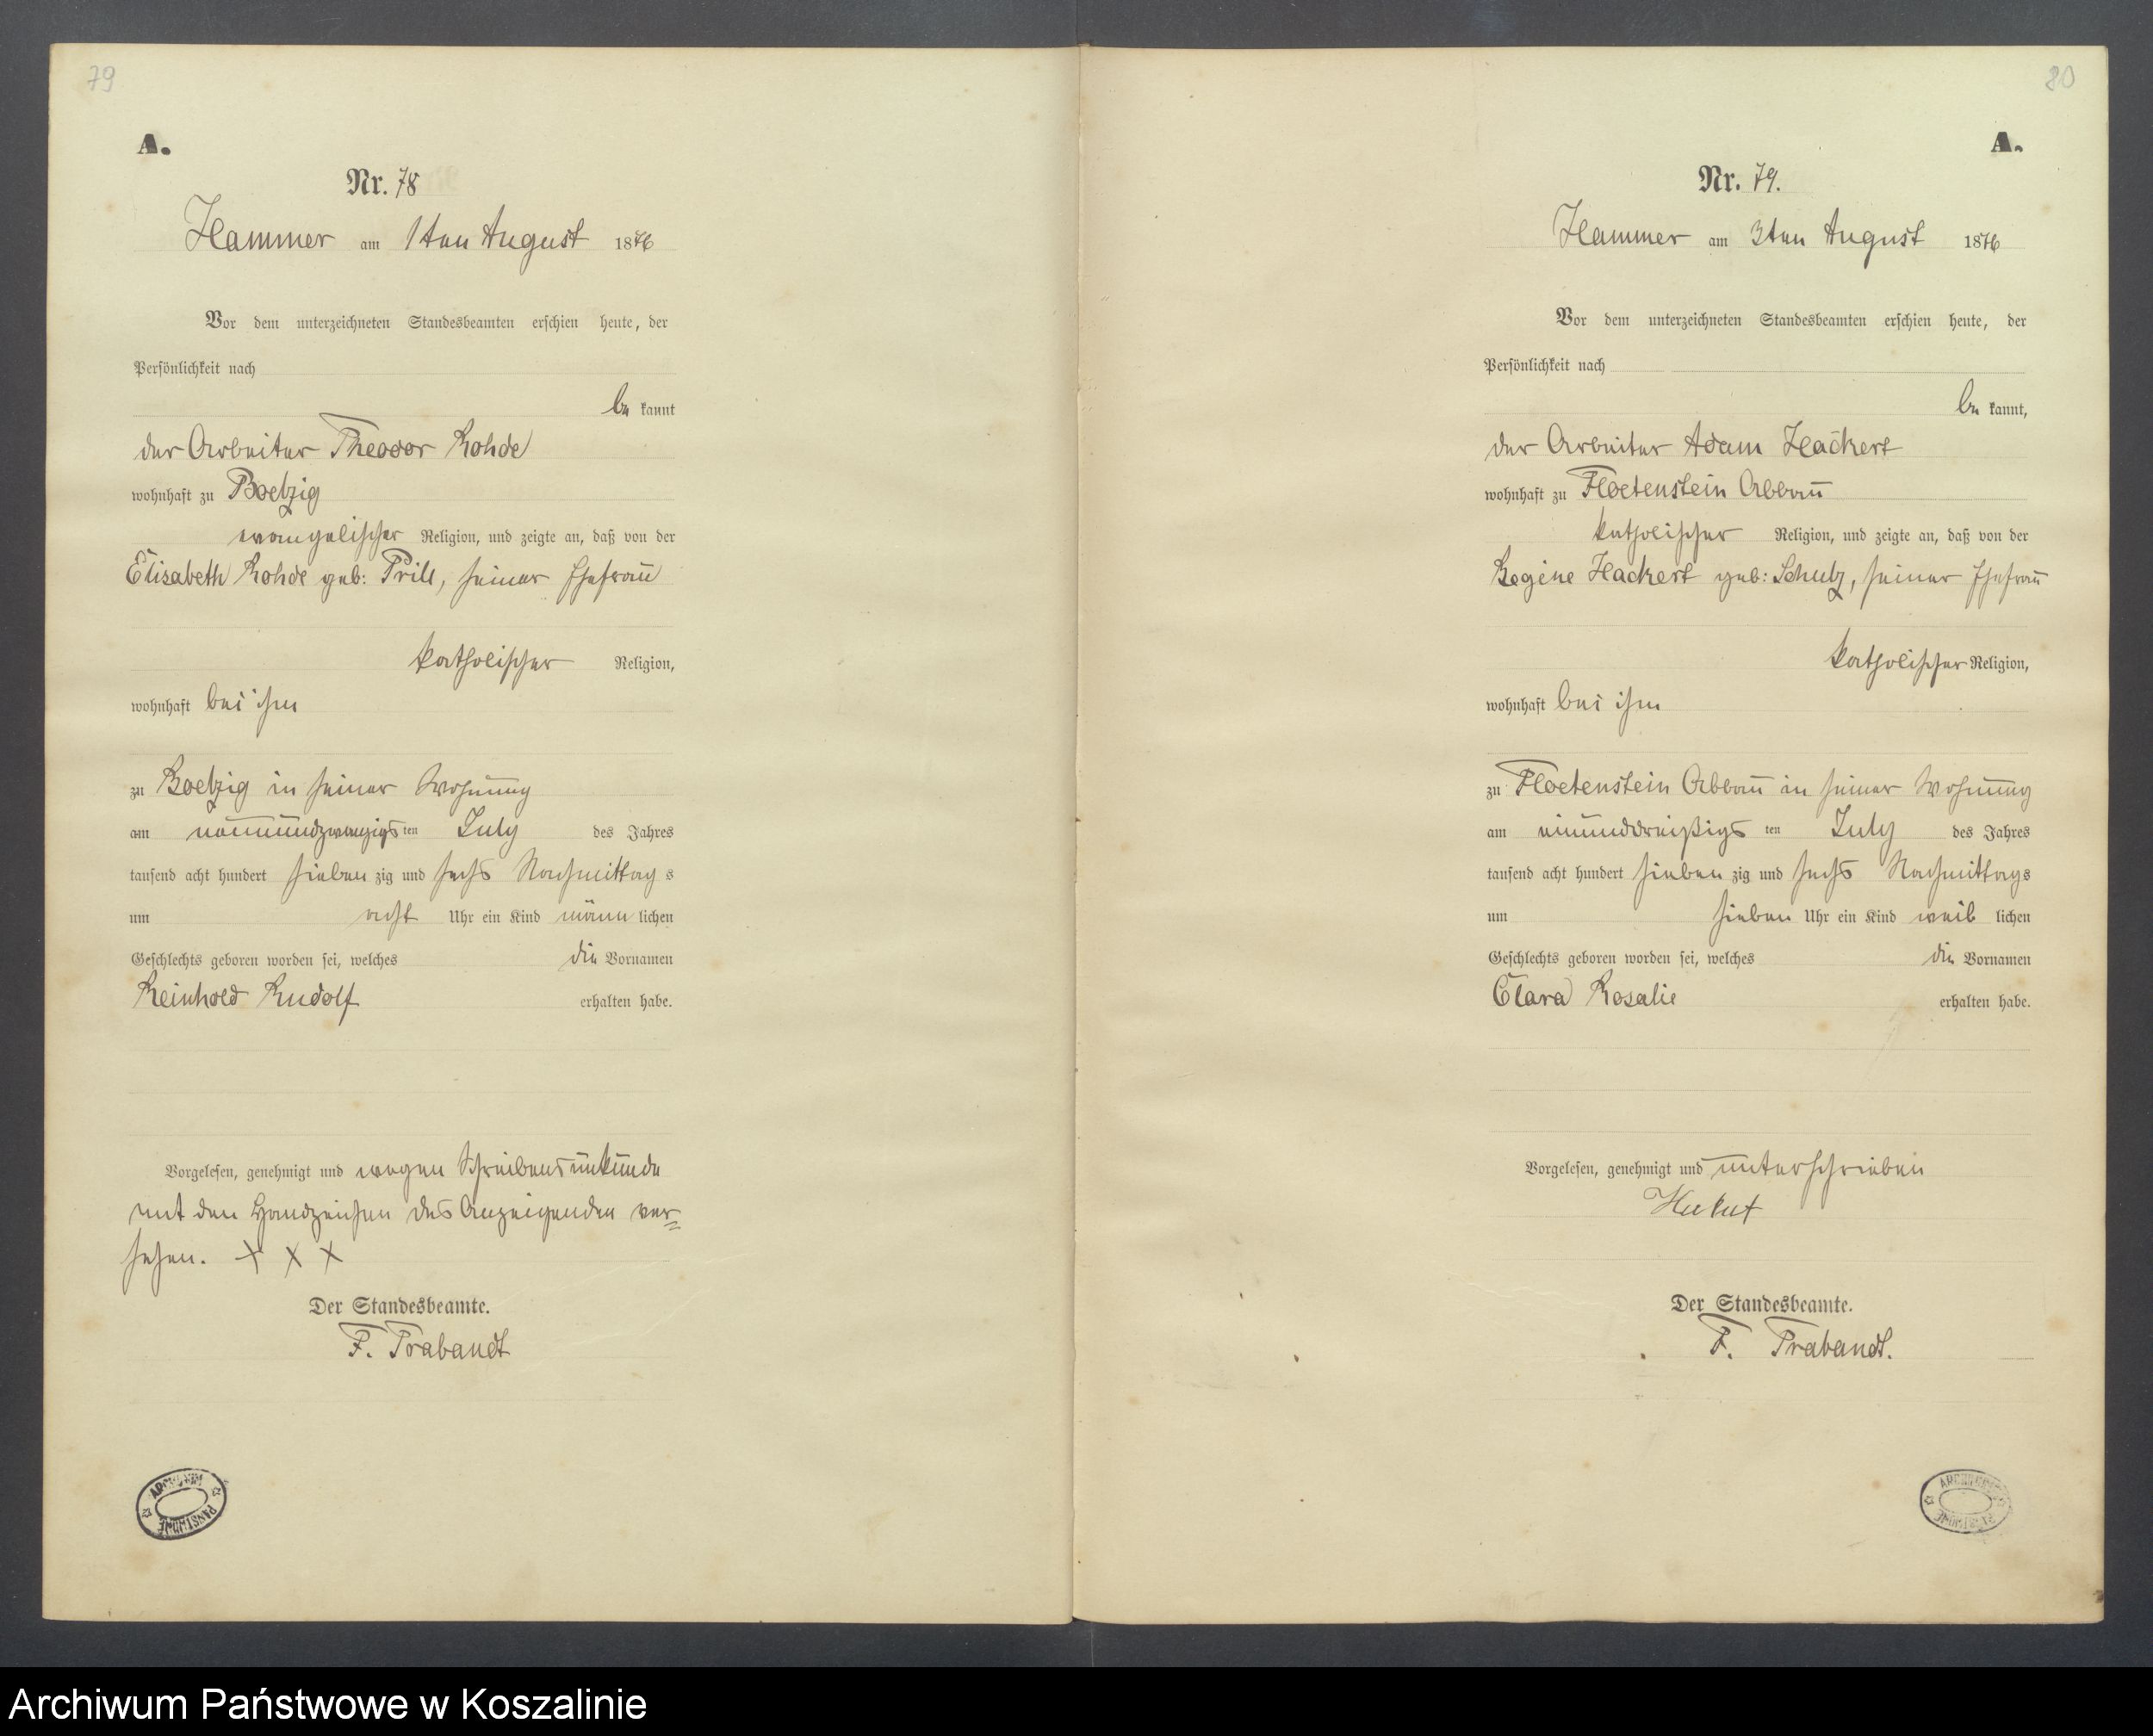 79
A.
Nr. 78
Hammer am 1ten August 1876
Vor dem unterzeichneten Standesbeamten erschien heute, der
Persönlichkeit nach
be kannt
der Arbeiter Theodor Rohde
wohnhaft zu Boelzig
evangelischer Religion, und zeigte an, daß von der
Elisabeth Rohde geb: Prill, seiner Ehefrau
katholischer Religion,
wohnhaft bei ihm
zu Boelzig in seiner Wohnung
am neunundzwanzigsten July des Jahres
tausend acht hundert sieben zig und sechs Nachmittag s
um acht Uhr ein Kind männ lichen
Geschlechts geboren worden sei, welches die Vornamen
Reinhold Rudolf erhalten habe.
Vorgelesen, genehmigt und wegen Schreibensunkunde
mit den Handzeichen des Anzeigenden ver=
sehen. X X X
Der Standesbeamte.
F. Trabandt
ARCHIWUM PAŃSTWOWE
80
A.
Nr. 79.
Hammer am 3ten August 1876
Vor dem unterzeichneten Standesbeamten erschien heute, der
Persönlichkeit nach
be kannt,
der Arbeiter Adam Hackert
wohnhaft zu Floetenstein Abbau
katholischer Religion, und zeigte an, daß von der
Regine Hackert geb: Schulz, seiner Ehefrau
katholischer Religion,
wohnhaft bei ihm
zu Floetenstein Abbau in seiner Wohnung
am einunddreißigs ten July des Jahres
tausend acht hundert sieben zig und sechs Nachmittags
um sieben Uhr ein Kind weib lichen
Geschlechts geboren worden sei, welches die Vornamen
Clara Rosalie erhalten habe.
Vorgelesen, genehmigt und unterschrieben
Der Standesbeamte.
F. Trabandt.
ARCHIWUM PAŃSTWOWE
Archiwum Państwowe w Koszalinie